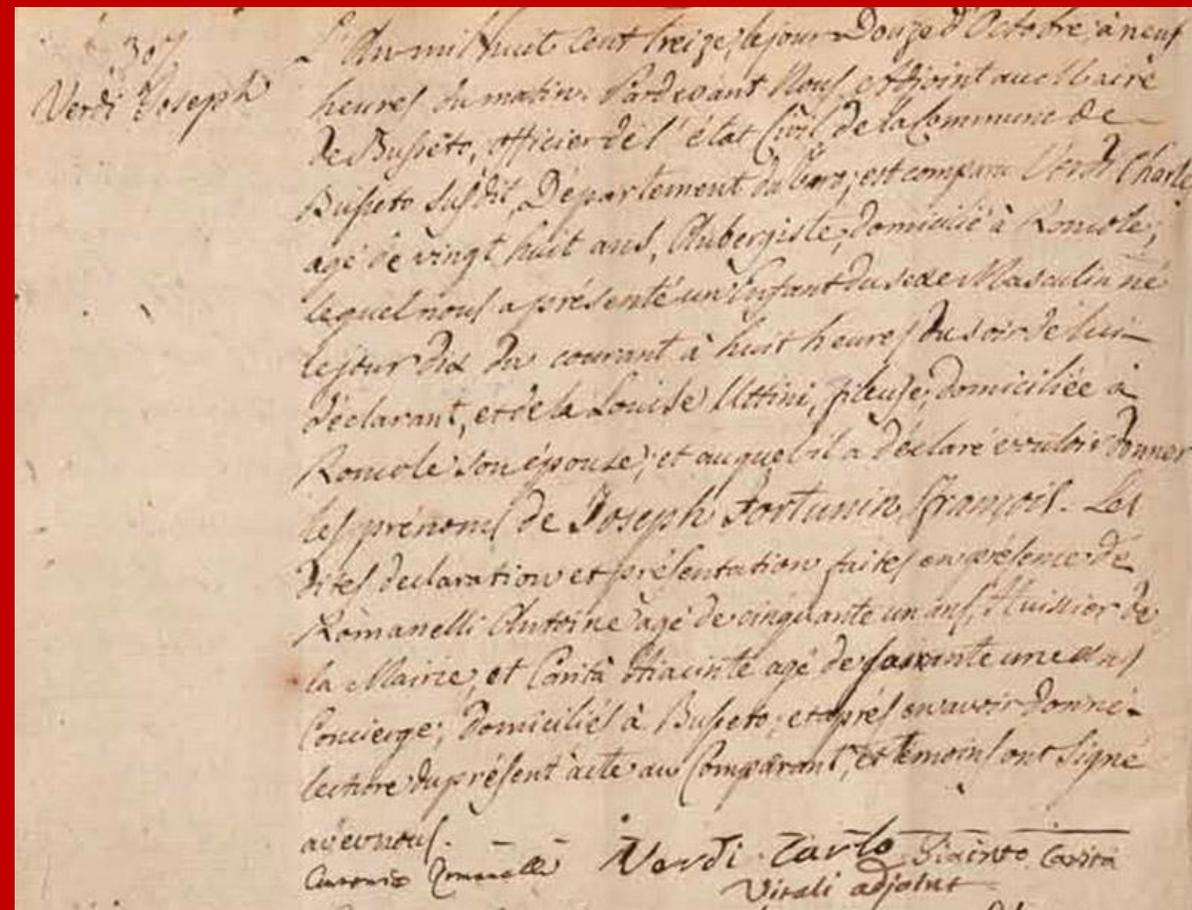 307
Verdi Joseph
L'An mil huit cent treize, le jour Douze d'Octobre, à neuf
heures du matin. Pardevant Nous adjoint au Maire
de Busseto, officier de l'état Civil de la Commune de
Busseto susdit, Département du Taro, est comparu Verdi Charles
agé de vingt huit ans, Aubergiste, domicilié à Roncole,
lequel nous a présenté un Enfant du sexe Masculin né
le jour dix du courant à huit heures du soir de lui
déclarant, et de la Louise Uttini, fileuse, domiciliée à
Roncole son épouse; et auquel il a déclaré vouloir donner
les prénoms de Joseph Fortunin François. Les
dites declaration et présentation faites en présence de
Romanelli Antoine agé de cinquante un ans, Huissier de
la Mairie, et Cantù Hiacinte agé de soixante une ans
Concierge; domiciliés à Busseto; et après en avoir donné
lecture du présent acte au Comparant, et témoins ont signé
avec nous.
Antonio Romanelli Verdi Carlo Giacinto Cantù
Vitali adjoint